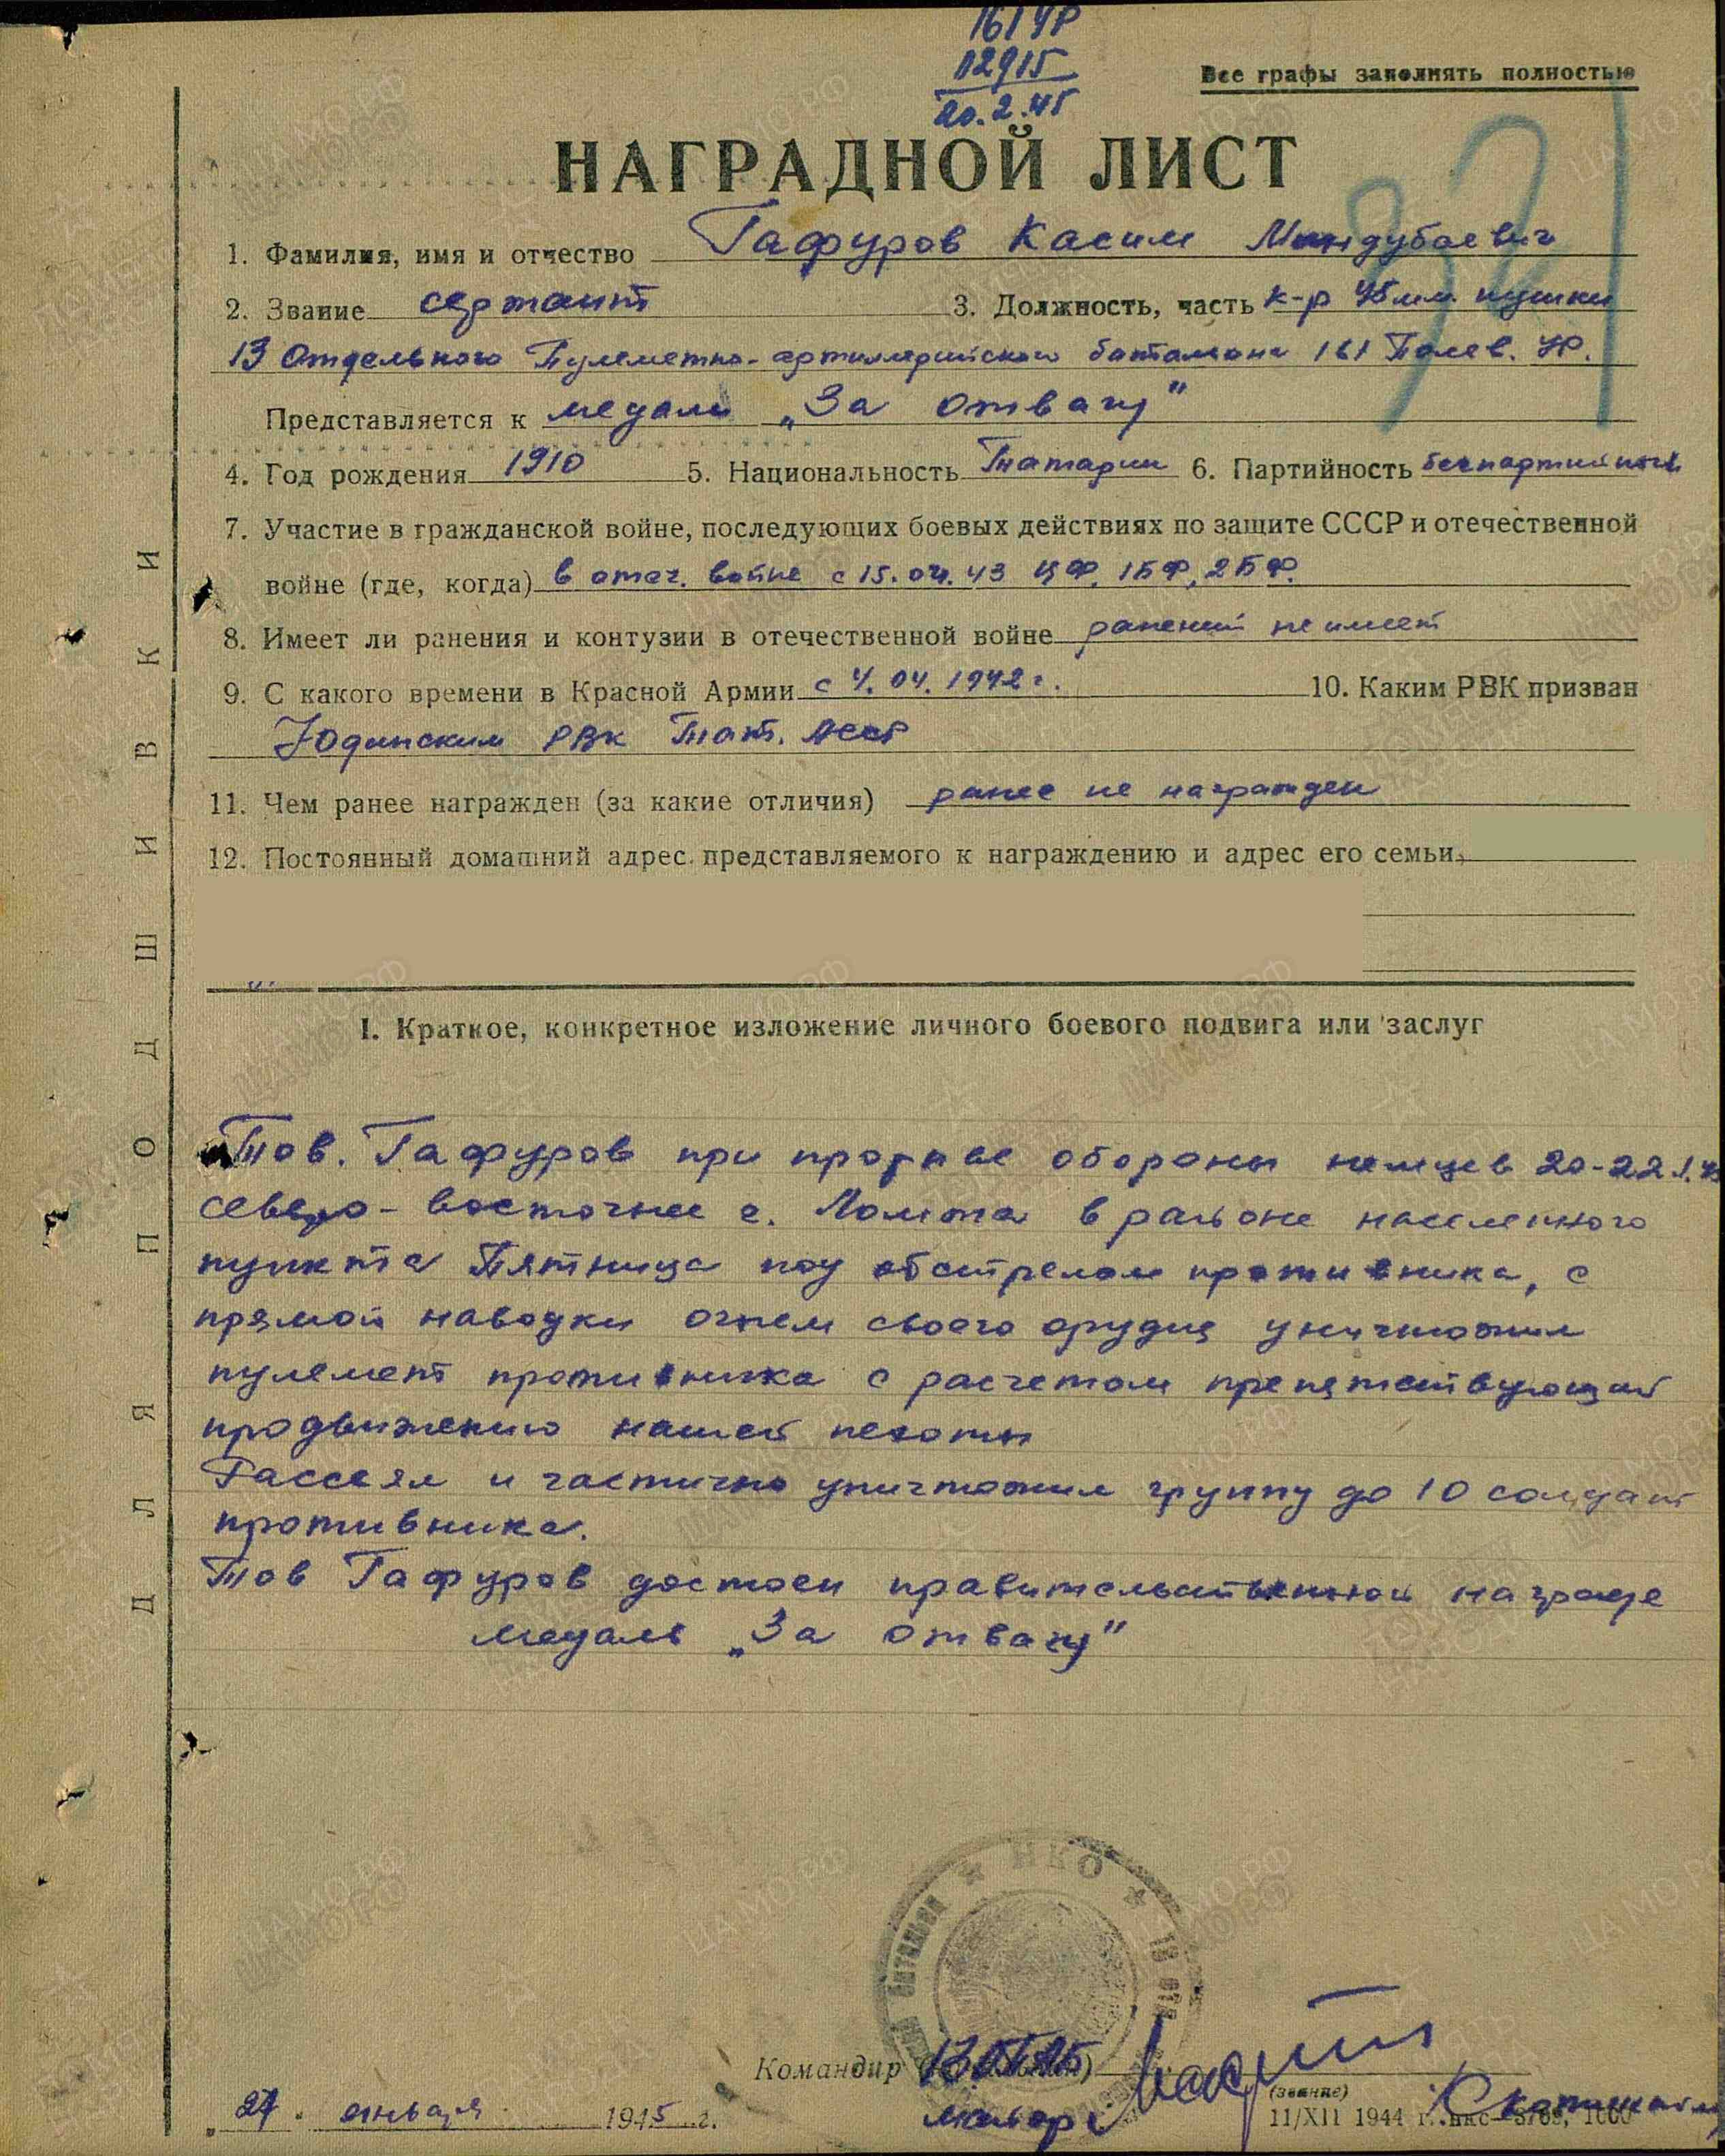 161 УР
02915
20.2.45
Все графы заполнять полностью
НАГРАДНОЙ ЛИСТ
1. Фамилия, имя и отчество Гафуров Касим Миндубаевич
2. Звание сержант 3. Должность, часть к-р 45 мм. пушки
13 Отдельного Пулеметно-артиллерийского батальона 161 Полев. УР.
Представляется к медали „За отвагу"
4. Год рождения 1910 5. Национальность Татарин 6. Партийность беспартийный
7. Участие в гражданской войне, последующих боевых действиях по защите СССР и отечественной
войне (где, когда) в отеч. войне с 15.04.43 ЦФ, 1БФ, 2БФ.
8. Имеет ли ранения и контузии в отечественной войне ранений не имеет
9. С какого времени в Красной Армии с 4.04.1942 г. 10. Каким РВК призван
Юдинским РВК Тат. АССР
11. Чем ранее награжден (за какие отличия) ранее не награжден
12. Постоянный домашний адрес представляемого к награждению и адрес его семьи,
I. Краткое, конкретное изложение личного боевого подвига или заслуг
Тов. Гафуров при прорыве обороны немцев 20-22.1.45
северо-восточнее г. Ломжа в районе населенного
пункта Пятница под обстрелом противника, с
прямой наводки огнем своего орудия уничтожил
пулемет противника с расчетом препятствующий
продвижению нашей пехоты
Рассеял и частично уничтожил группу до 10 солдат
противника.
Тов Гафуров достоен правительственной награде
медаль „За отвагу"
ДЛЯ ПОДШИВКИ
★ НКО ★
Командир 13 ОПАБ
майор
(звание)
„27" января 1945 г.
11/XII 1944 г.